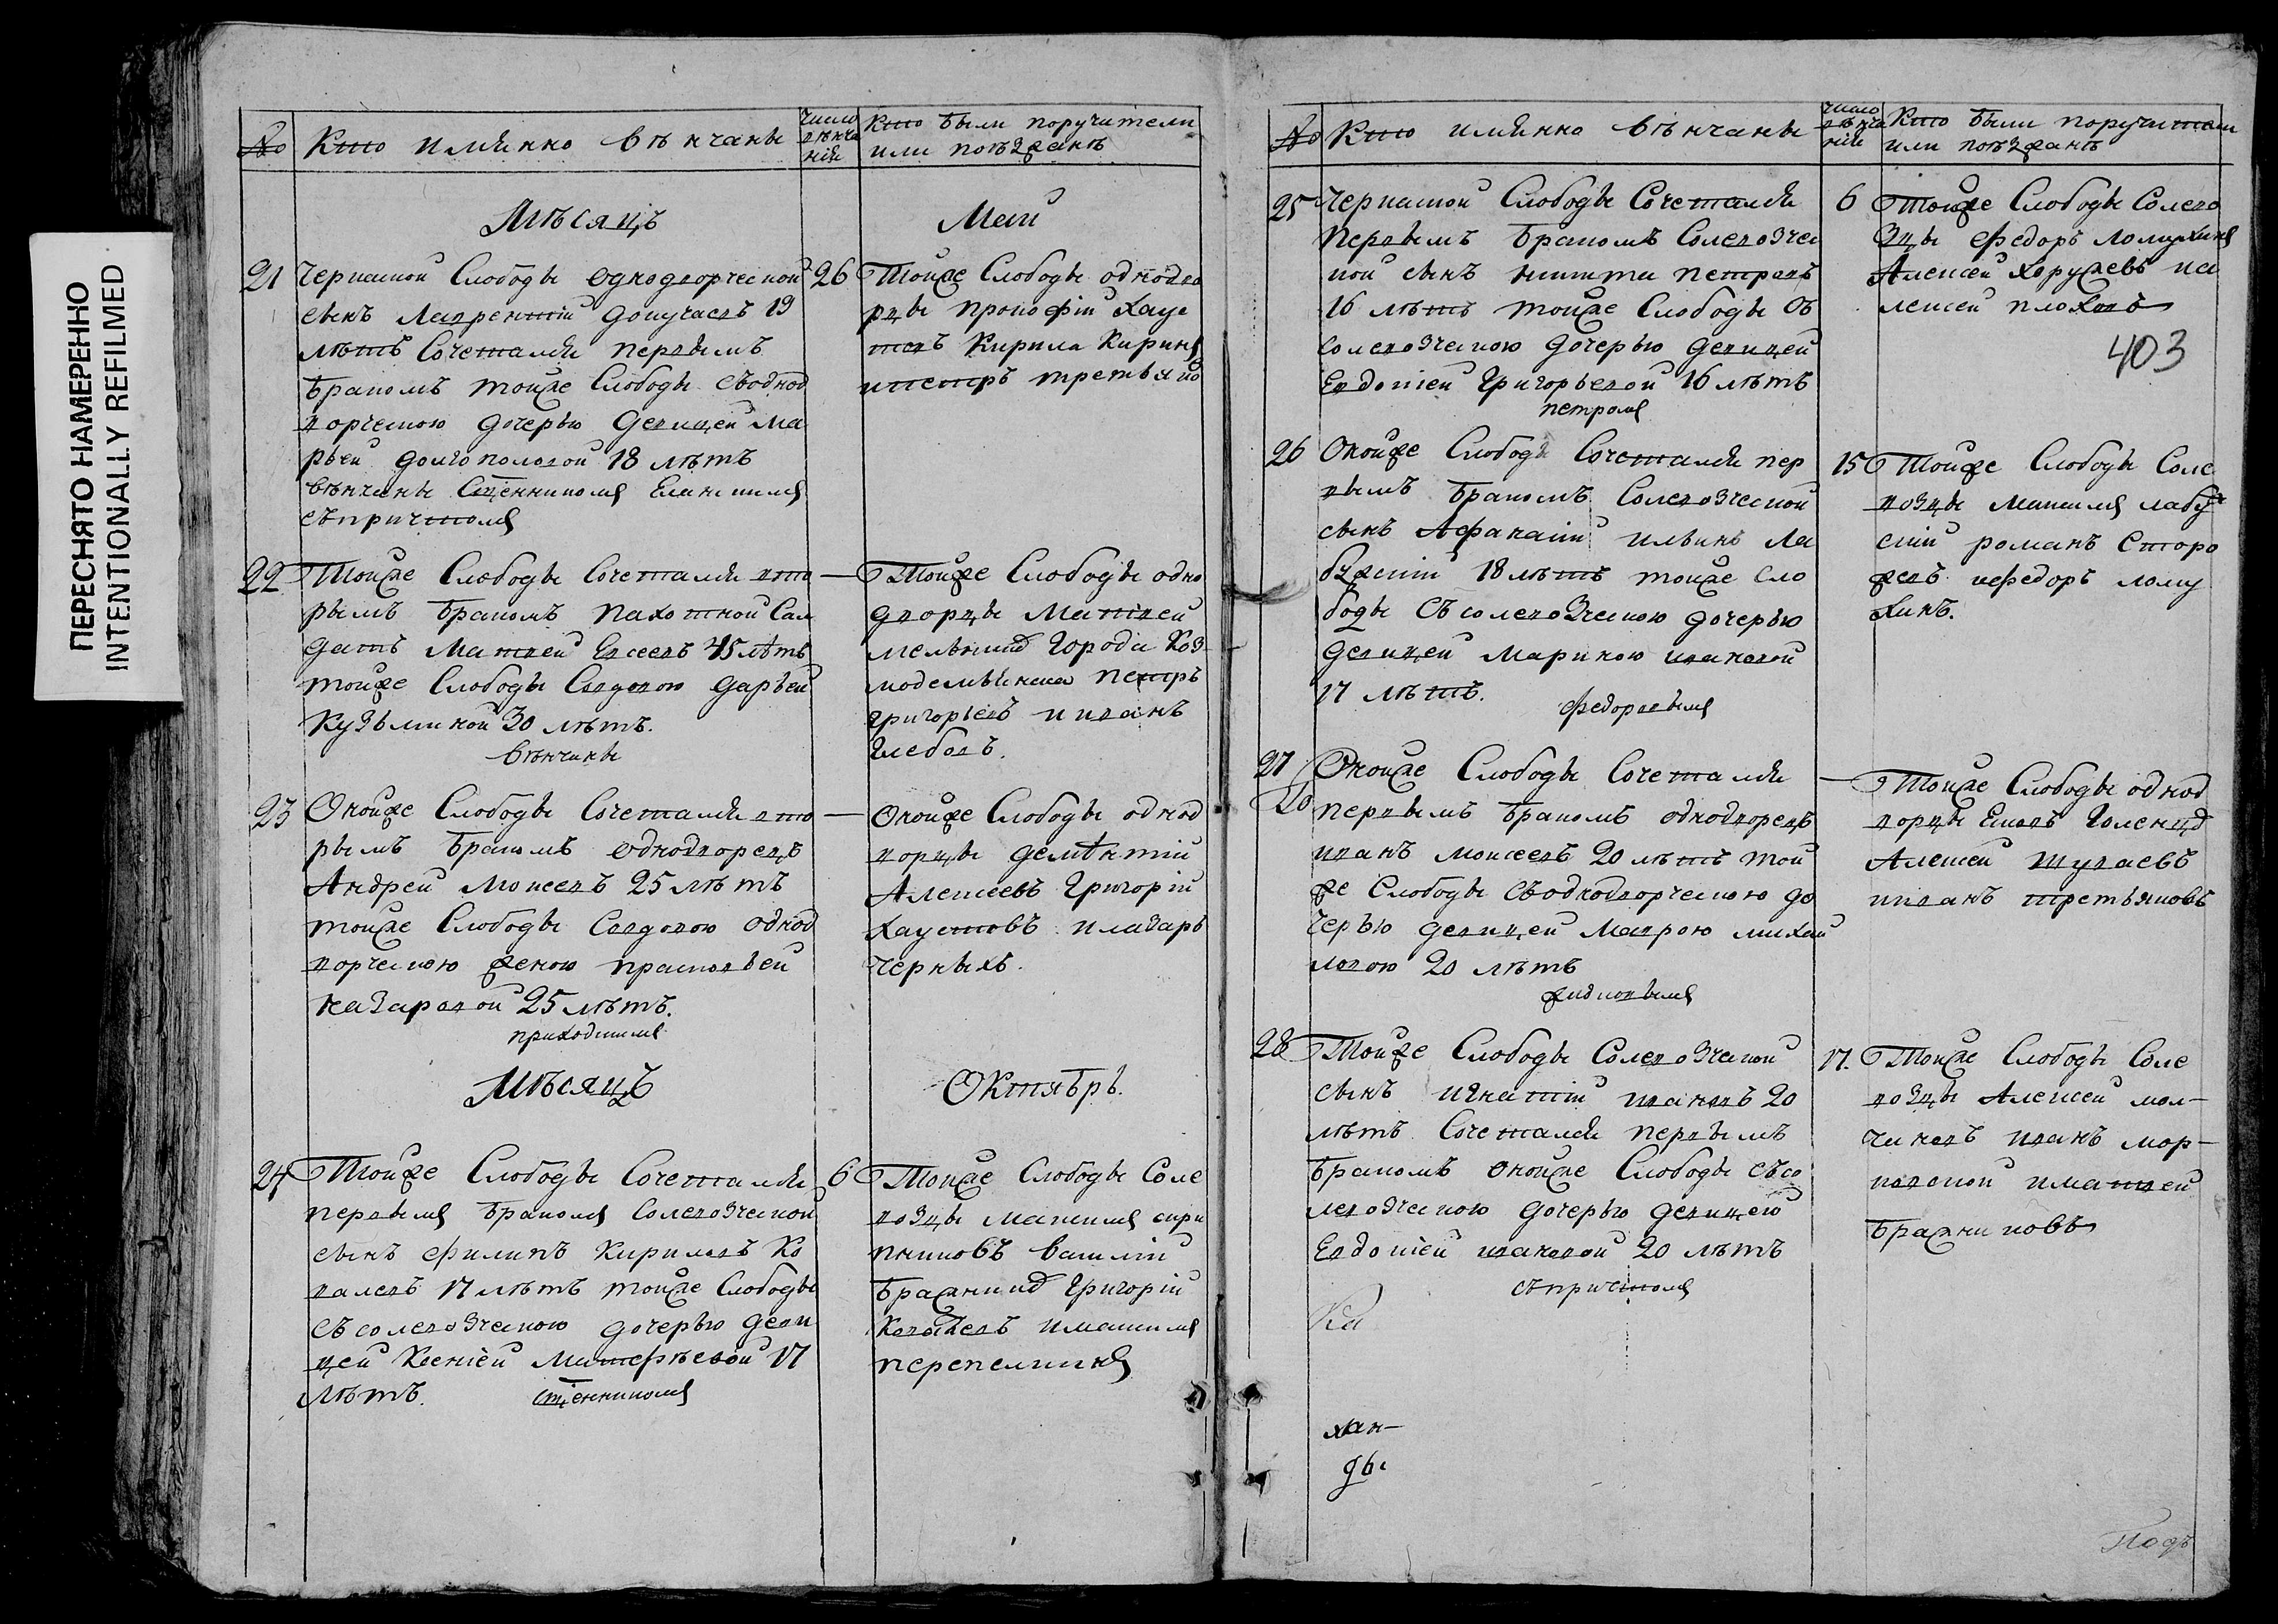 ПЕРЕСНЯТО НАМЕРЕННО
INTENTIONALLY REFILMED
№ Кто имянно вѣнчаны
число вѣнчанія
Кто были поручители
или поѣзжанѣ
Мѣсяцъ
Маій
21 Чернавской Слободы однодворческой
сынъ Лаврентій 19
лѣтъ Сочетался первымъ
бракомъ тойже Слободы съоднод
ворческою дочерью девицей Ма
рьей Долгополовой 18 лѣтъ
вѣнчаны Сщенникомъ
съпричтомъ
26 Тойже Слободы однодво
рцы Прокофій Хаус
товъ Кирила Кирин
ипетръ третьяко
22 Тойже Слободы Сочетался вто
рымъ бракомъ пахотной Сал
датъ Матвей Евсеевъ 45 лѣтъ
тойже Слободы Свдовою Дарьей
Кузьминой 30 лѣтъ.
вѣнчаны
— Тойже Слободы одно
дворцы Матвей
мельник Города Коз
модемьянска Петръ
григорьевъ и иванъ
Глебовъ.
23 Оной же Слободы Сочетался вто
рымъ бракомъ однодворецъ
Андрей Моисеевъ 25 лѣтъ
тойже Слободы Свдовою однод
ворческою женою прасковьей
Назаровой 25 лѣтъ.
приходскимъ
— Оной же Слободы однод
ворцы дементій
Алексеевъ Григорій
Хаустовъ илазарь
Черныхъ.
Мѣсяцъ
Октябрь.
24 Тойже Слободы Сочетался
первымъ бракомъ Солевозческой
сынъ Филипъ Кириловъ Ко
валевъ 17 лѣтъ тойже Слободы
съсолевозческою дочерью деви
цей Ксеніей Матефѣевой 17
лѣтъ.
сщенникомъ
6 Тойже Слободы Соле
возцы Максимъ скри
пниковъ василій
бражник Григорій
имаксимъ
перепелкин
№ Кто имянно вѣнчаны
число вѣнчанія
Кто были поручители
или поѣзжанѣ
25 Чернавской Слободы Сочетался
первымъ бракомъ Солевозчес
кой сынъ никита петровъ
16 лѣтъ тойже Слободы съ
солевозческою дочерью девицей
Евдокией Григорьевой 16 лѣтъ
петромъ
6 Тойже Слободы Солево
зцы федоръ ломухин
Алексей Хоружевъ иа
лексей плоховъ
403
26 Оной же Слободы Сочетался пер
вымъ бракомъ Солевозческой
сынъ Афанасій ильинъ Ла
бузский 18 лѣтъ тойже сло
боды съсолевозческою дочерью
девицей Мариною ивановой
17 лѣтъ.
федоровымъ
15 Тойже Слободы Соле
возцы максимъ лабу
скій романъ Сторо
жевъ ифедоръ лому
хинъ.
27 Оной же Слободы Сочетался
первымъ бракомъ однодворецъ
иванъ моисеевъ 20 лѣтъ той
же Слободы съоднодворческою до
черью девицей Маврою михай
ловою 20 лѣтъ
жидковымъ
— Тойже Слободы однод
ворцы
Алексей шуваевъ
ииванъ третьяковъ
28 Тойже Слободы Солевозческой
сынъ игнатій ивановъ 20
лѣтъ Сочетался первымъ
бракомъ онойже Слободы съсо
левозческою дочерью девицею
Евдокіей ивановой 20 лѣтъ
съпричтомъ
17. Тойже Слободы Соле
возцы Алексей мол-
чановъ иванъ мор-
ковской иматвей
бражниковъ
Ка
жан-
ды
Подъ